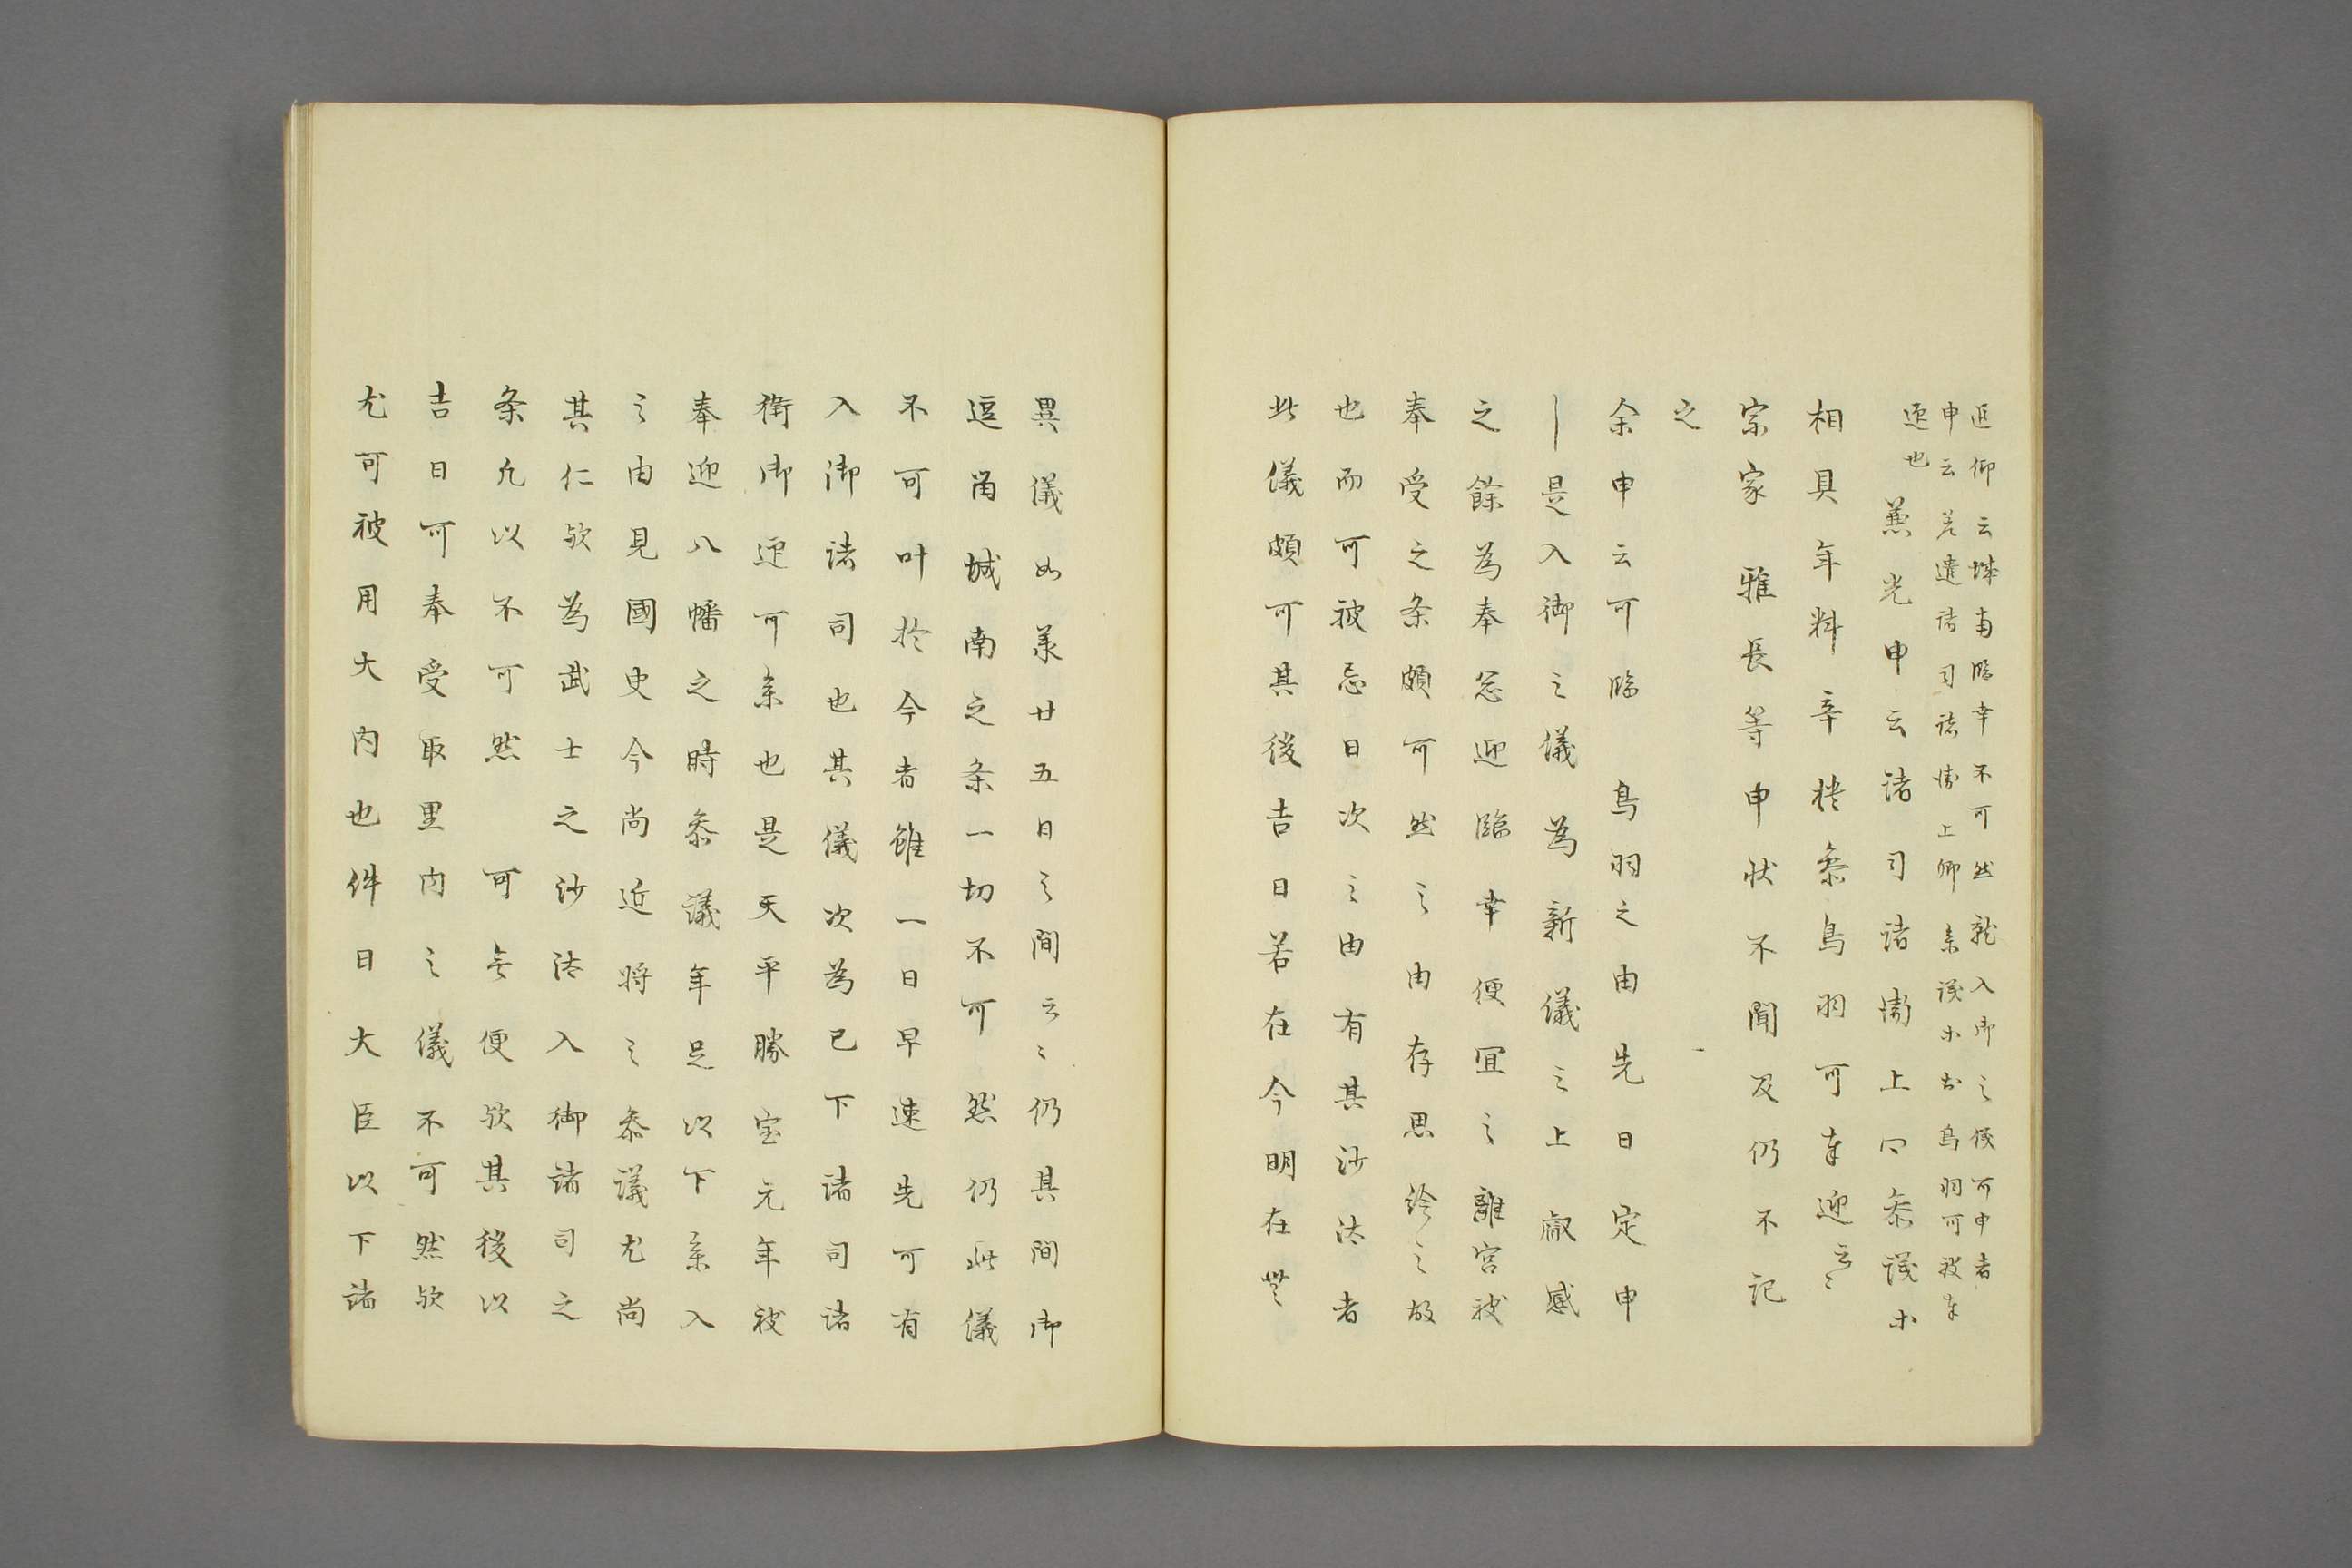 近仰云城南臨幸不可然就入御之儀可申者
申云差遣諸司諸衛上卿参議小於鳥羽可被奉
迎也
兼光申云諸司諸衛上卩参議小
相具年料辛櫃参鳥羽可奉迎云〻
宗家雅長等申状不聞及仍不記
之
余申云可臨鳥羽之由先日定申
是入御之儀為新儀之上叡感
之餘為奉忩迎臨幸便宜之離宮被
奉受之条頗可然之由存思給之故
也而可被忌日次之由有其沙汰者
此儀頗可其後吉日若在今明在無
異儀如來廿五日之間云〻仍其間御
逗留城南之条一切不可然仍此儀
不可叶於今者雖一日早速先可有
入御諸司也其儀次為已下諸司諸
衛御迎可参也是天平勝宝元年被
奉迎八幡之時参議年足以下参入
之由見國史今尚近将之参議尤尚
其仁欤為武士之沙汰入御諸司之
条九以不可然可無便欤其後以
吉日可奉受取里内之儀不可然欤
尤可被用大内也件日大臣以下諸